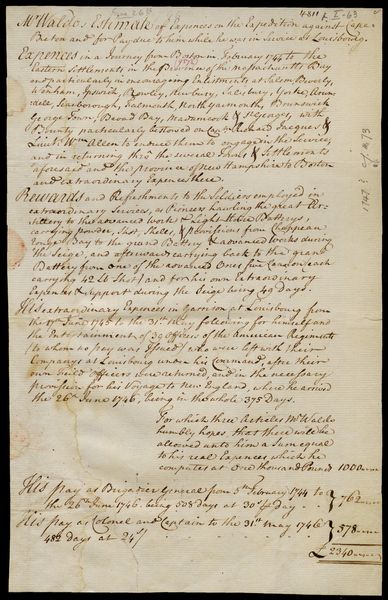 Mr Waldo's Estimate of Expences on the Expedition against Cape
Breton and for Pay due to him while he was in Service at Louisbourg.
Expences in a Journey from Boston in February 1744 to the
Eastern Settlements, in the Province of the Massachusetts Bay
and particularly in encouraging Enlistments at Salem, Beverly,
Wenham, Ipswich, Rowley, Newbury, Salisbury, York, Arun-
dell, Scarborough, Falmouth, North yarmouth, Brunswick
George Town, Broad Bay, & St Georges, with
a Bounty particularly bestowed on Captn Richard Jaques &
Lieut. Wm Allen to induce them to engage in the Service,
and in returning thro the several Towns & Settlements
aforesaid and the province of new Hampshire to Boston
and extraordinary Expences there.
Rewards and Refreshments to the Soldiers employed in
extraordinary Services, as Pioneers hawling the great Ar-
tillery to the advanced Works & Light House Battery,
carrying powder, Shot, Shells, & provisions from Chappeau
rouge Bay to the grand Battery & advanced works during
the Seige, and afterwards carrying back to the grand
Battery from one of the advanced Ones five Cannon each
carrying 42 lb Shot) and for his own Extraordinary
Expences & Support during the Seige being 49 days.
His extraordinary Expences in Garrison at Louisbourg from
the 17th June 1745 to the 31st May following for himself and
the Entertainment of 30 Officers of the American Regiments
to whom no pay was issued) who were left with their
Companys at Louisbourg under his Command, after their
own Field Officers were returned, and in the necessary
provision for his Voyage to New England, where he arrived
the 26th June 1746, being in the whole 375 Days.
For which three Articles Mr Waldo
humbly hopes that there will be
allowed unto him a Sum equal
to his real Expences, which he
computes at One thousand Pounds 1000
His pay as Brigadier General from 5th February 1744 to
the 26th June 1746. being 508 days at 30s/ day 762
His pay as Colonel and Captain to the 31st May 1746
482 days at 24s/ 578
£ 2340